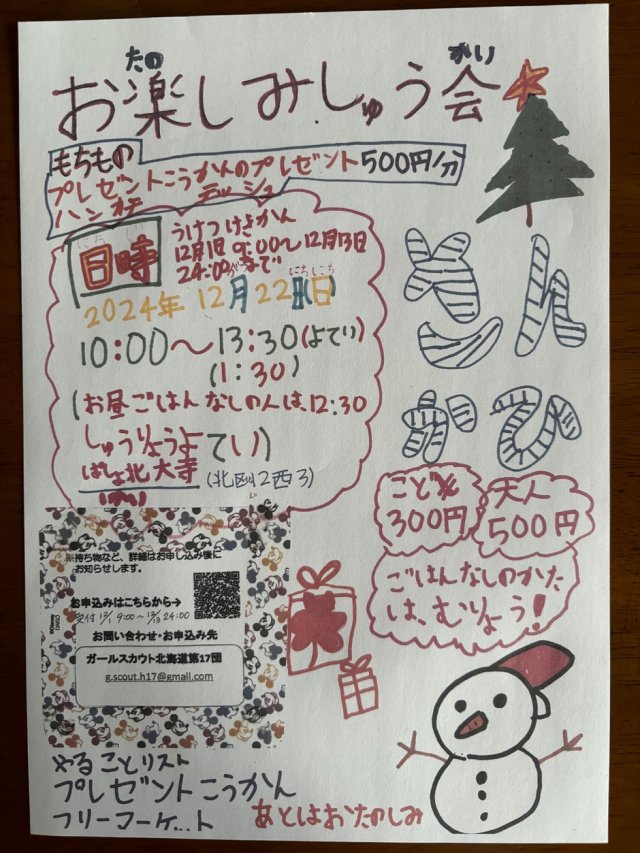 たの かい
お楽しみしゅう会
もちもの
プレゼントこうかんのプレゼント500円分
ハンカチ ティッシュ
にちじ
日時
うけつけきかん
12月1日 9:00～12月13日
24:00まで
にちようび
2024年 12月22日
10:00～13:30(よてい)
(1:30)
(お昼ごはんなしの人は、12:30
しゅうりょうよてい)
ばしょ北大寺
(北九2西3)
さんかひ
こども
300円
大人
500円
ごはんなしのかた
は、むりょう!
※持ち物など、詳細はお申し込み後に
お知らせします。
お申込みはこちらから→
受付 12/1 9:00～12/13 24:00
お問い合わせ・お申込み先
ガールスカウト北海道第17団
g.scout.h17@gmail.com
©Disney
やることリスト
プレゼントこうかん
フリーマーケット
あとはおたのしみ